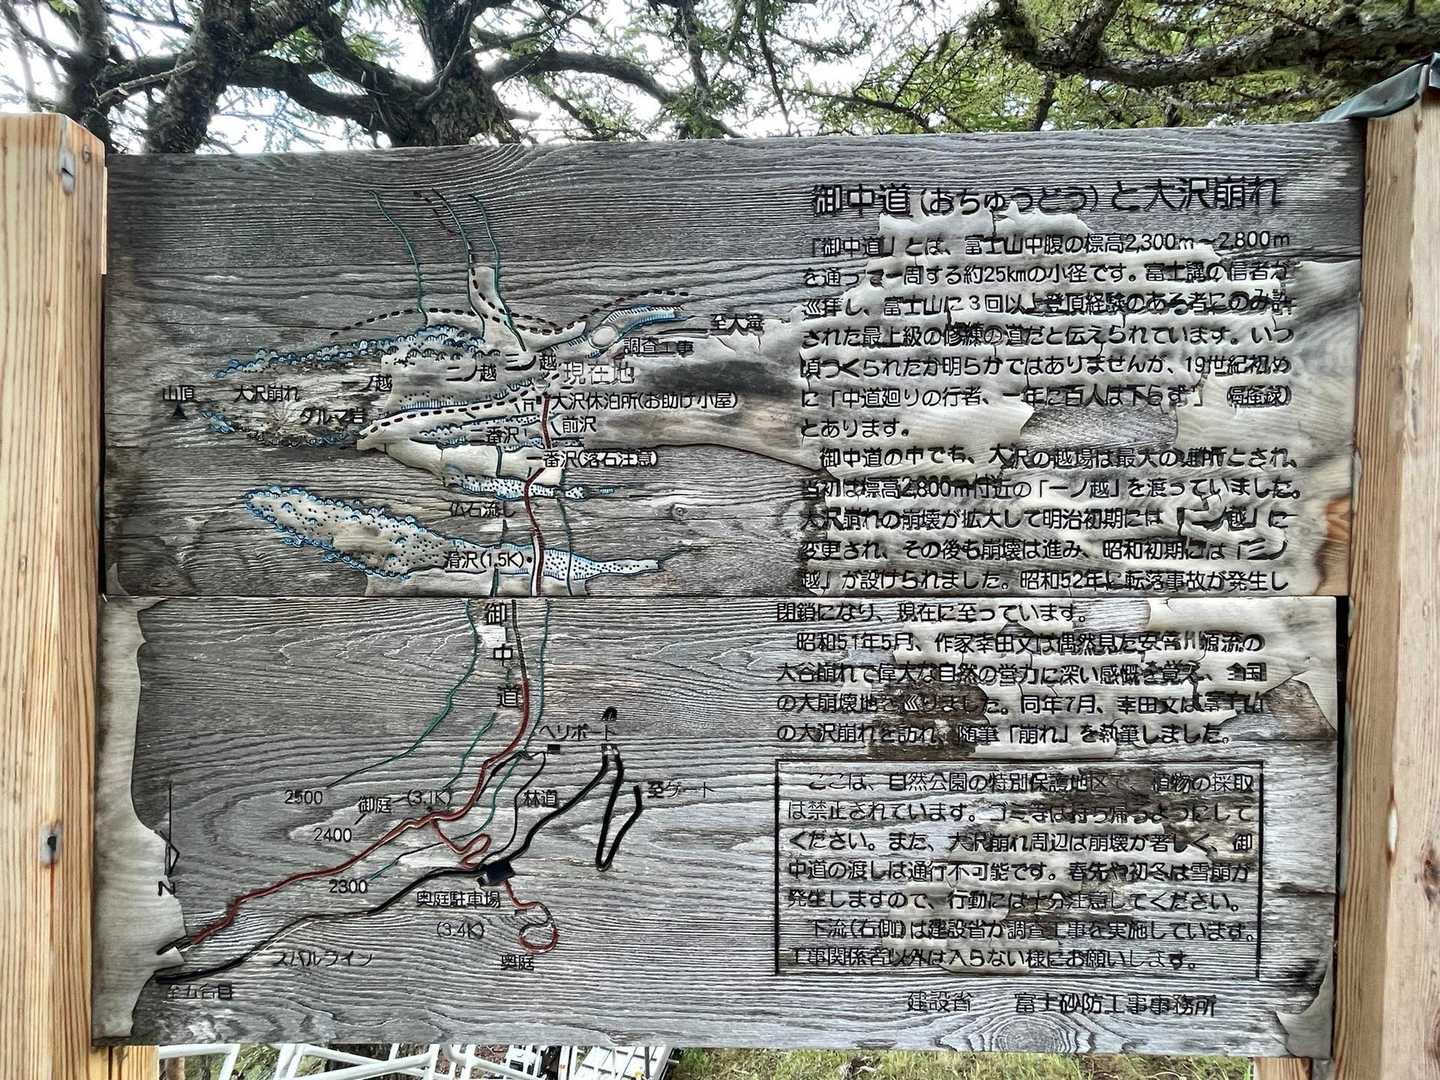 御中道(おちゅうどう)と大沢崩れ
「御中道」とは、富士山中腹の標高2,300m〜2,800m
を通って一周する約25kmの小径です。富士講の信者が
巡拝し、富士山に3回以上登頂経験のある者にのみ許
された最上級の修練の道だと伝えられています。いつ
頃つくられたか明らかではありませんが、19世紀初め
に「中道廻りの行者、一年に百人は下らず」
とあります。
御中道の中でも、大沢の越場は最大の難所とされ、
当初は標高2,800m付近の「一ノ越」を渡っていました。
大沢崩れの崩壊が拡大して明治初期には「二ノ越」に
変更され、その後も崩壊は進み、昭和初期には「三ノ
越」が設けられました。昭和52年に転落事故が発生し
閉鎖になり、現在に至っています。
昭和51年5月、作家幸田文は偶然見た安倍川源流の
大谷崩れで偉大な自然の営力に深い感慨を覚え、全国
の大崩壊地を巡りました。同年7月、幸田文は富士山
の大沢崩れを訪れ、随筆「崩れ」を執筆しました。
ここは、自然公園の特別保護地区で、植物の採取
は禁止されています。ゴミ等は持ち帰るようにして
ください。また、大沢崩れ周辺は崩壊が著しく、御
中道の渡しは通行不可能です。春先や初冬は雪崩が
発生しますので、行動には十分注意してください。
下流(右側)は建設省が調査工事を実施しています。
工事関係者以外は入らない様にお願いします。
建設省 富士砂防工事事務所
至大滝
調査工事
三ノ越
二ノ越
一ノ越
現在地
山頂
大沢崩れ
ダルマ岩
大沢休泊所(お助け小屋)
前沢
二番沢
一番沢(落石注意)
仏石流し
滑沢(1.5K)
御中道
ヘリポート
至ゲート
林道
2500
御庭
(3.1K)
2400
2300
N
奥庭駐車場
(3.4K)
奥庭
スバルライン
至五合目